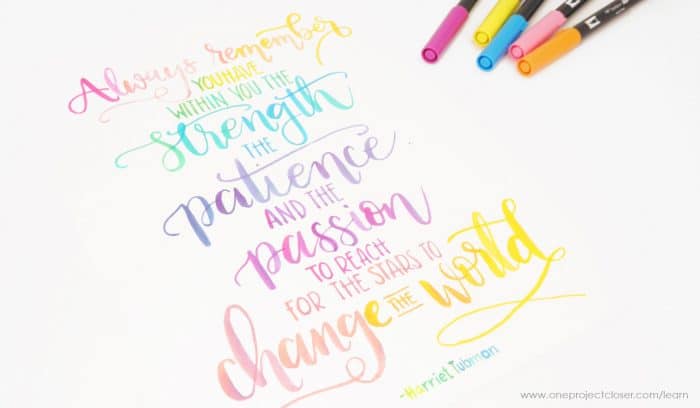 Always remember
YOU HAVE
WITHIN YOU THE
strength
THE
patience
AND THE
passion
TO REACH
FOR THE STARS TO
change THE world
-Harriet Tubman
www.oneprojectcloser.com/learn